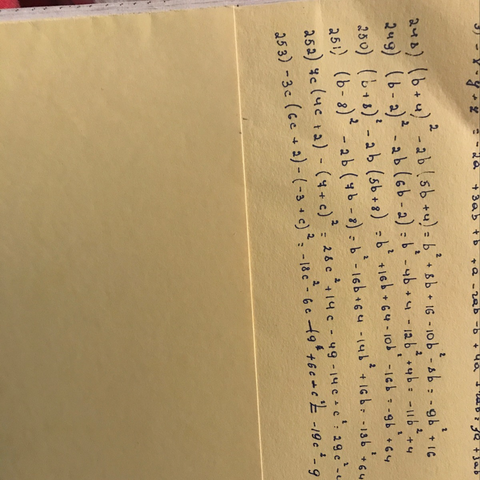 248) (b+4)² - 2b(5b+4) = b² + 8b + 16 - 10b² - 8b = -9b² + 16
249) (b-2)² - 2b(6b-2) = b² - 4b + 4 - 12b² + 4b = -11b² + 4
250) (b+8)² - 2b(5b+8) = b² + 16b + 64 - 10b² - 16b = -9b² + 64
251) (b-8)² - 2b(7b-8) = b² - 16b + 64 - 14b² + 16b = -13b² + 64
252) 7c(4c+2) - (7+c)² = 28c² + 14c - 49 - 14c + c² = 29c² - 4
253) -3c(6c+2) - (-3+c)² = -18c² - 6c - 9 + 6c + c² = -19c² - 9